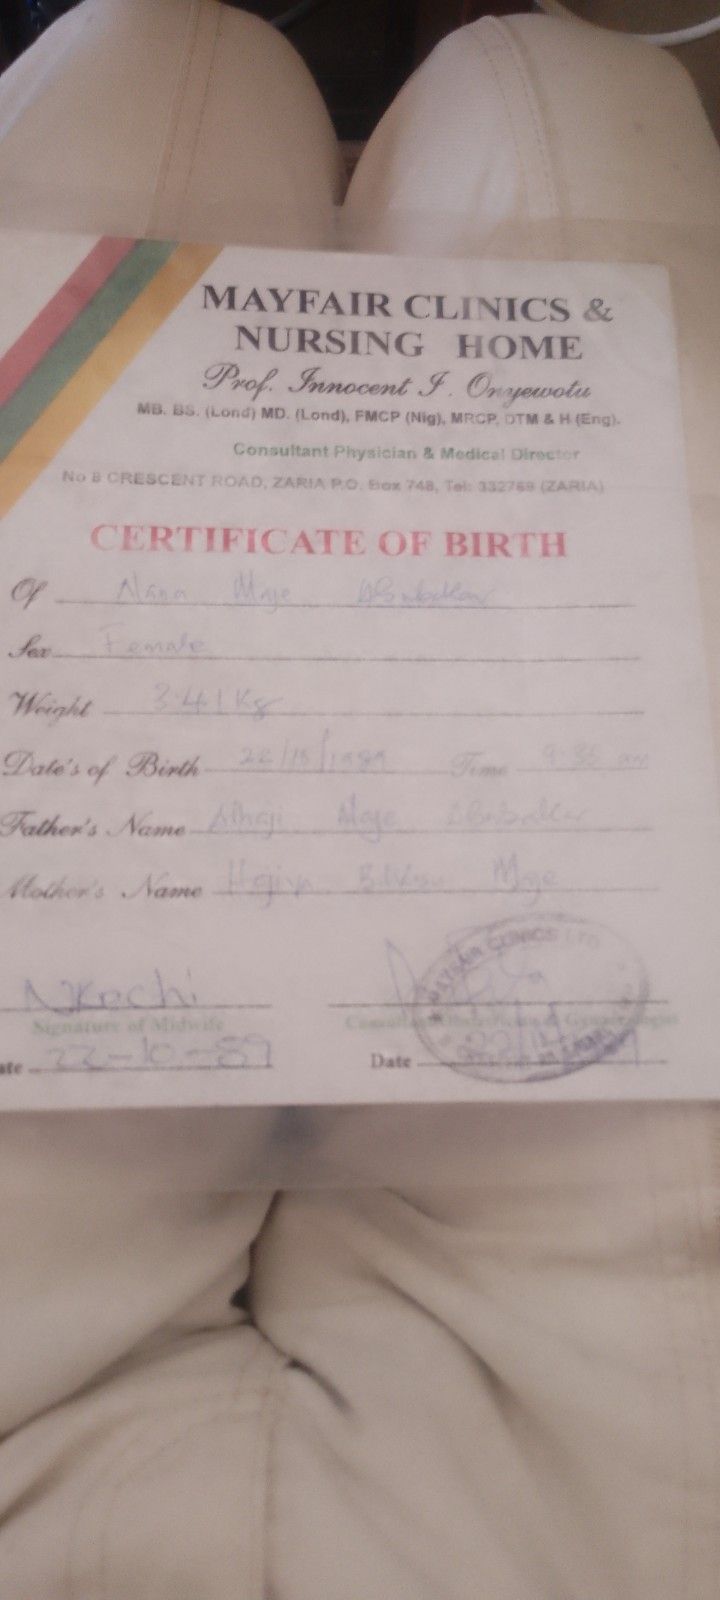 MAYFAIR CLINICS &
NURSING HOME
Prof. Innocent I. Onyewotu
MB. BS. (Lond) MD. (Lond), FMCP (Nig), MRCP, DTM & H (Eng).
Consultant Physician & Medical Director
No 8 CRESCENT ROAD, ZARIA P.O. Box 748, Tel: 332769 (ZARIA)
CERTIFICATE OF BIRTH
Of Nana Maje Abubakar
Sex Female
Weight 3.41 Kg
Date's of Birth 22/10/1989 Time 9:35 am
Father's Name Alhaji Maje Abubakar
Mother's Name Hajiya Bilkisu Maje
Nkechi
Signature of Midwife Consultant Obstetrician & Gynaecologist
ate 22-10-89 Date
CLINICS LTD